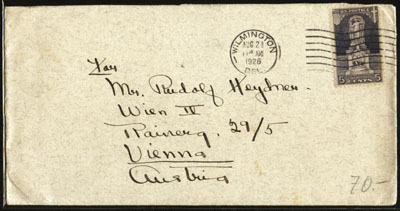 WILMINGTON
AUG 21
11 AM
1926
DEL.
U.S. POSTAGE
5 CENTS 5
For
Mr. Rudolf Heydner
Wien IV
29/5
Vienna
Austria
70.-